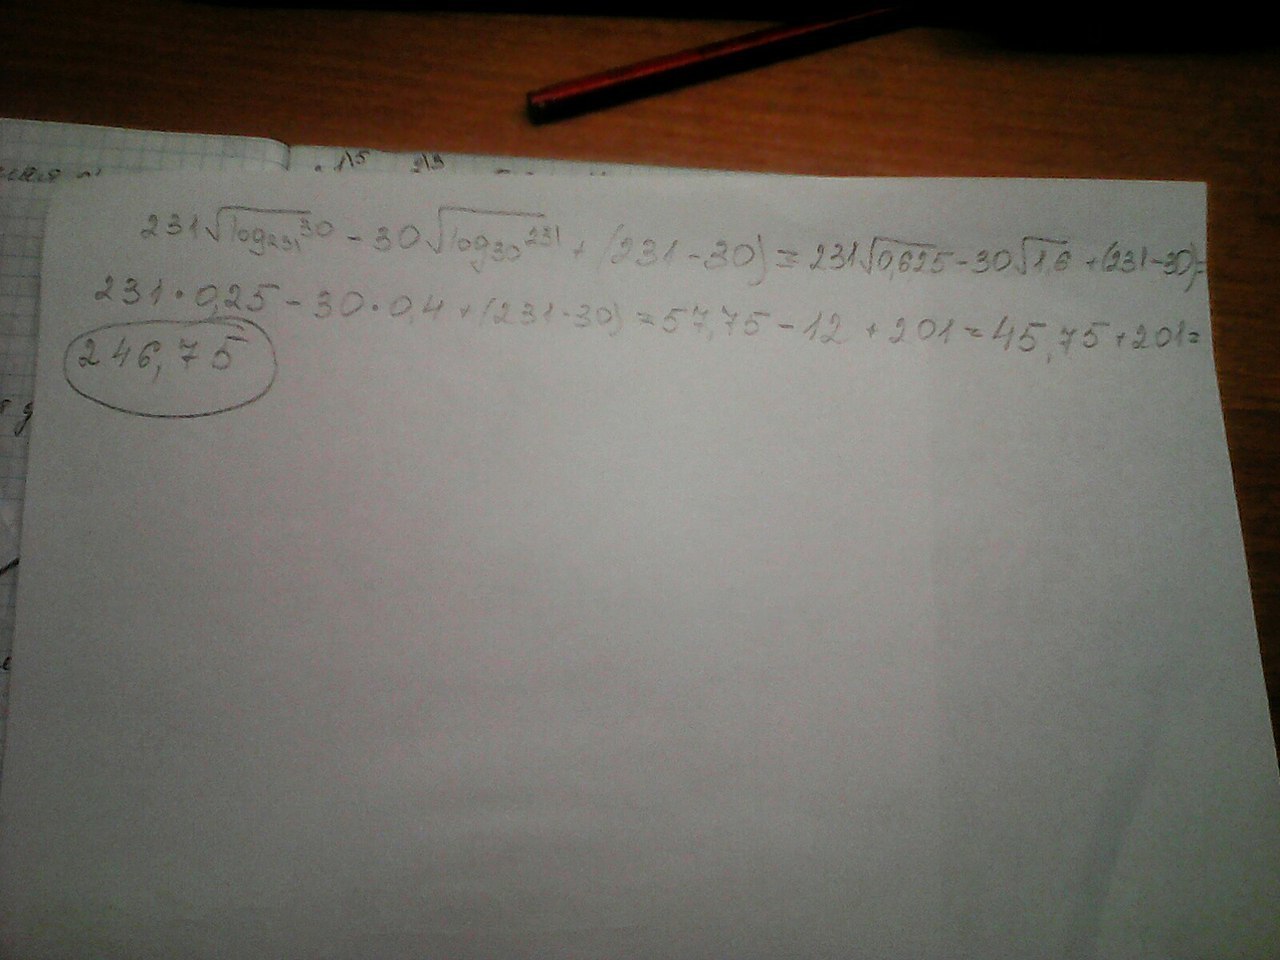 1\5 2\3
231√log₂₃₁30 - 30√log₃₀231 + (231-30) = 231√0,625 - 30√1,6 + (231-30)=
231·0,25 - 30·0,4 + (231-30) = 57,75 - 12 + 201 = 45,75 + 201 =
246,75